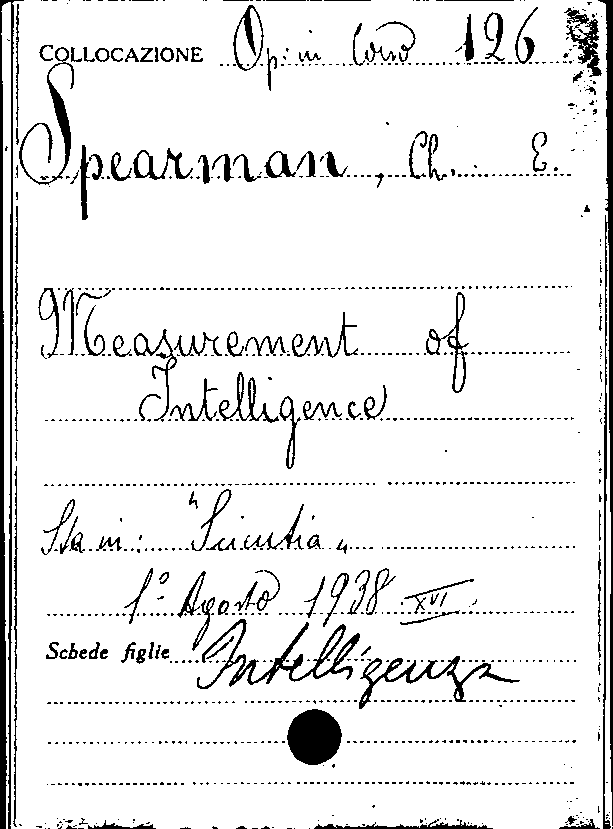 COLLOCAZIONE Op: in Corso 126
Spearman, Ch. E.
Measurement of
Intelligence
Sta in: "Scientia"
1º Agosto 1938 XVI
Schede figlie Intelligenza